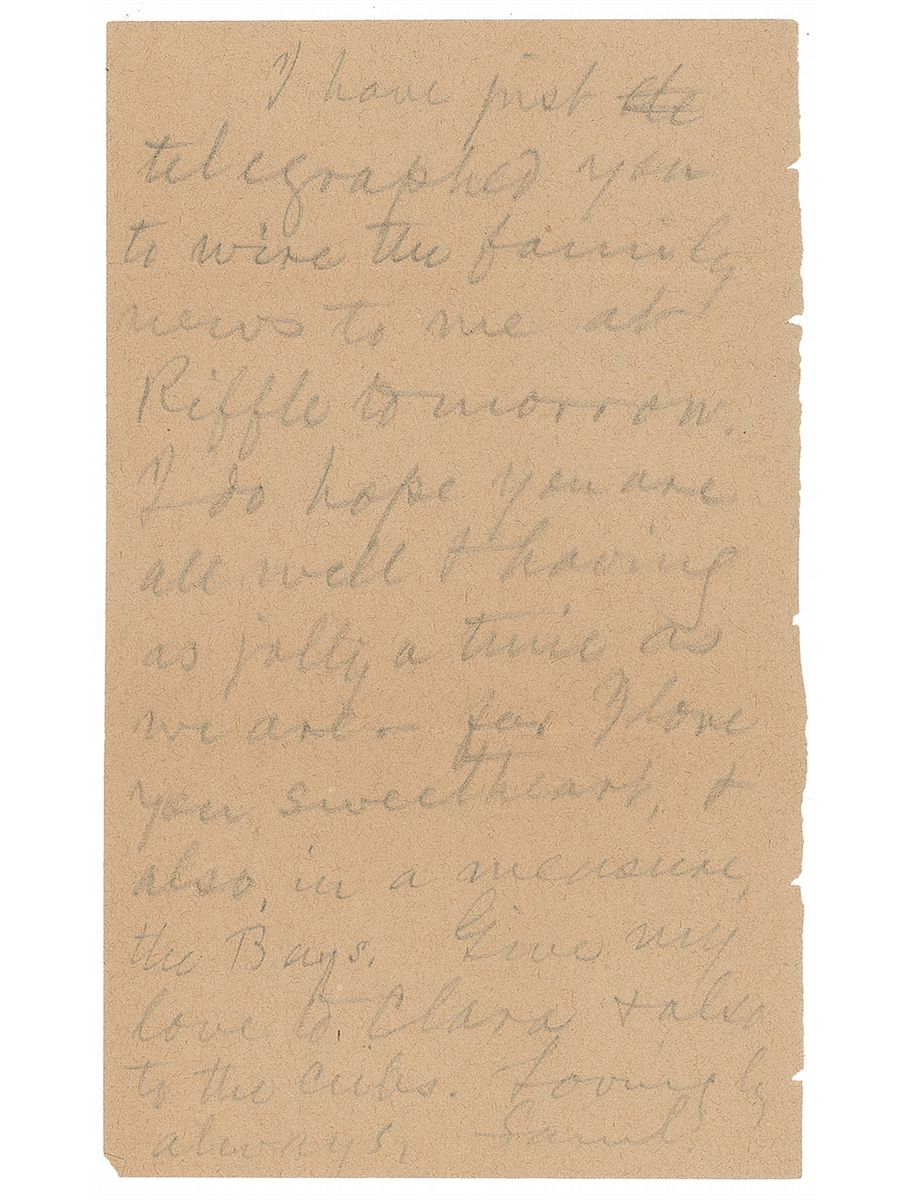 I have just the
telegraphed you
to wire the family
news to me at
Riffle tomorrow.
I do hope you are
all well & having
as jolly a time as
we are – for I love
you, sweetheart, &
also, in a measure,
the Bays. Give my
love to Clara & also
to the cubs. Lovingly
always, Saml.